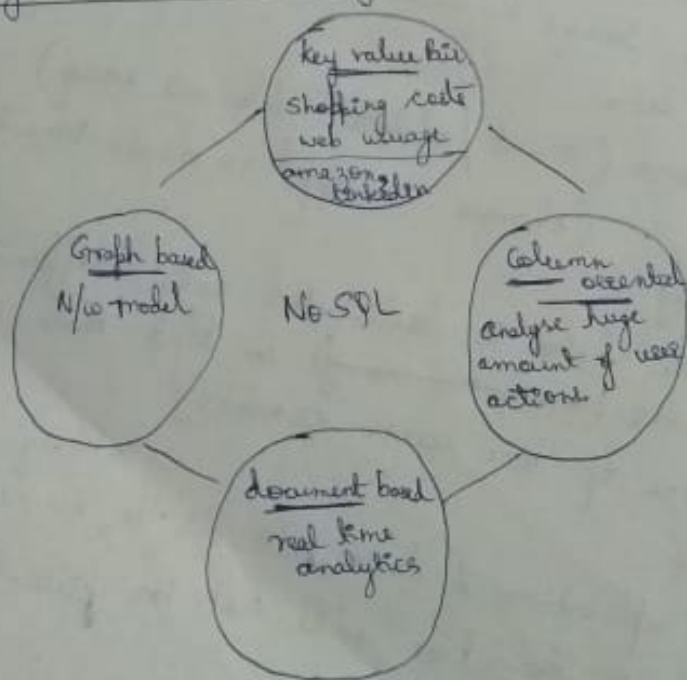 key value Pair
Shopping carts
web usuage
amazon,
linkedin
Graph based
N/w model
NoSQL
Column
oriented
analyse huge
amount of user
actions
document based
real time
analytics